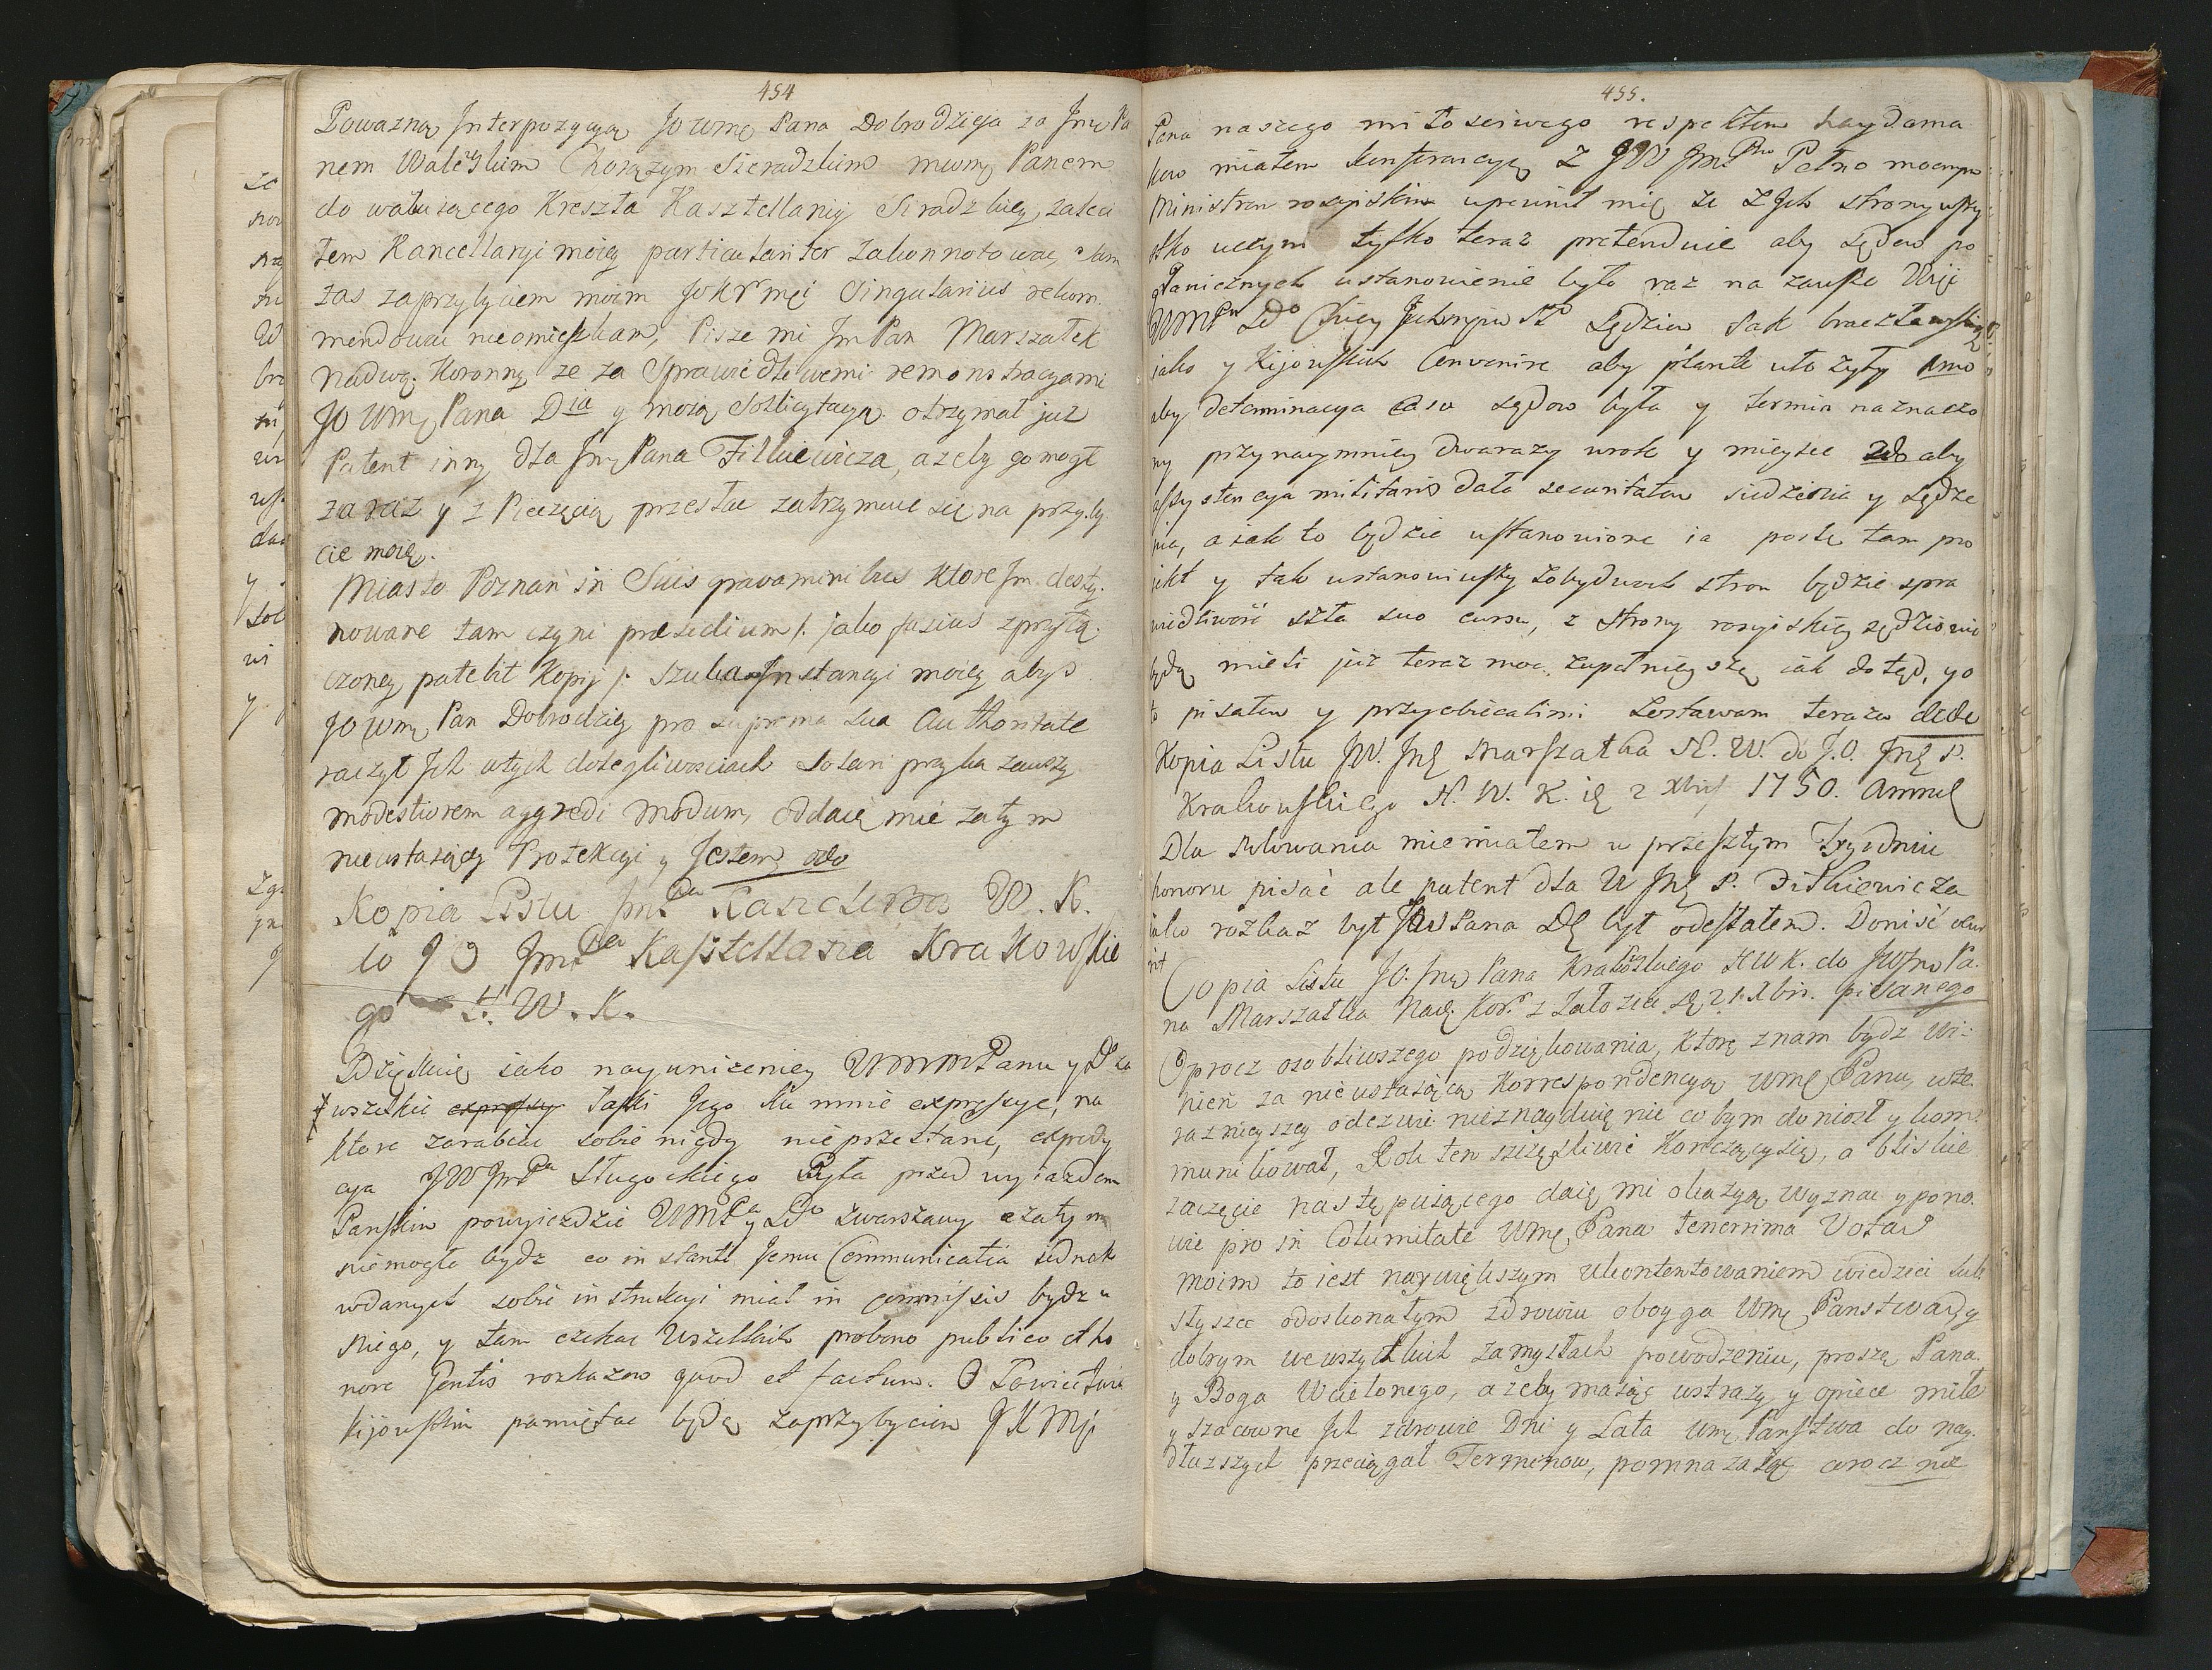 454
Powazną Interpozycyą JO WMę Pana Dobrodzieja za Jmę Pa
nem Walewskim Chorążym Sieradzkim mwmę Panem
do wakującego Krzesła Kasztellanij Siradzkiey zaleci
łem Kancellaryi moiey particulariter zakonnotować, sam
zas zaprzybyciem moim JOKrMci Singularius rekom.
mendować nieomieszkam, Pisze mi Jm Pan Marszałek
Nadwę. Koronny ze za Sprawiedliwemi remonstracyami
JO WMę Pana Dia y moią Sollicytacyą otrzymał juz
Patent inny dla Jmę Pana Filkiewicza, azeby go mogł
zaraz y z Pieczęcią przesłac zatrzymuie się na przyby.
cie moie.
Miasto Poznań in Suis gravaminibus ktore Jm. desty.
nowane tam czyni præsidium /: jako fusius zprzyłą.
czoney patebit Kopij /: szuka Instancyi moiey abyś
JO WMę Pan Dobrodziey pro suprema sua Authoritate
raczył Jch w tych dolegliwosciach Solari przykazawszy
modestiorem aggredi modum, oddaię mie zatym
nieustaiącey Protekcyi y Jestem odo
Kopia Listu JmPa Kanclerza W. K.
do JO JmPa Kasztellana Krakowskie
go H. W. K.
Dziękuię iako nayunizeniey WMMPanu y Do za
wszelkie expressy łaski Jego ku mnie expressye, na
ktore zarabiac sobie nigdy nieprzestanę, expedy
cya JW JmPa Sługockiego była przed wyiazdem
Panskim powyiezdzie WMPa y Do zwarszawy azatym
niemogła bydz co in stanti Jemu Communicatia jednak
wdanych sobie instrukcyi miał in commissis bydz u
niego, y tam czekac Wszelkich pro bono publico et ho
nore Gentis rozkazow quod et factum. O Łowiectwie
kijowskim pamiętac będę zaprzybyciem JKMci

455.
Pana naszego miłosciwego respektem haydama
kow miałem konferencyę z JW JmcPno Pełnomocnym
Ministrem rosyiskim upewnił mię ze z Jch strony wszy
stko uczyni tylko teraz pretenduie aby sędow po
granicznych ustanowienie było raz na zawsze
WMPn Do Sędziow tak bracławskiey
iako y Kijowskich Convenire aby plante ułozyły 1mo
aby determinacya czasu sędow była y termin naznaczo
ny przynaymniey dwarazy wrok y mieysce 2do aby
assystencya militaris dała securitatem siedzenia y sędze
nia, a iak to będzie ustanowione ia poslę tam pro
jekt y tak ustanowiwszy zobydwuch stron będzie spra
wiedliwość szła suo cursu, z strony rosyiskiey sędziowie
będą mieli juz teraz moc zupełnieyszą iak dotąd, y o
to pisałem y przyobiecali mi Zostawam teraz
Kopia Listu JW. Jmę Marszałka N. W. do J.O. Jmę P.
Krakowskiego H. W. K. 2 Xbris 1750. Anni
Dla Polowania niemiałem w przeszłym Tygodniu
honoru pisać ale patent dla W Jmę P. Filkiewicza
iako rozkaz był JwPana Dę był odesłałem. Donisć
Copia Listu JO. Jmę Pana Krakowskiego HWK. do JWJmę Pa.
na Marszałka Nadę. Kor. z Załozic dę 21 Xbris pisanego
Oprocz osobliwszego podziękowania, ktorę znam bydz wi:
nien za nieustaiącą Korrespondencyą WMę Panu, wte.
raznieyszey odezwie nieznayduię nic cobym doniosł y kom.
munikował, Rok ten szczęśliwie kończący się, a bliskie
zaczęcie następuiącego daię mi okazyą wyznac y pona.
wie pro in Columitate WMę Pana tenerrima Vota
moim to iest naywiększym Ukontentowaniem wiedziec lub
słyszec odoskonałym zdrowiu oboyga WMę Panstwa y
dobrym we wszystkich zamysłach powodzeniu, proszę Pana.
y Boga Wcielonego, azeby maiąc wstrazy y opiece miłe
y szacowne Jch zdrowie Dni y Lata WMę Panstwa do nay.
dłuzszych przeciągał Terminow, pomnazaiąc corocznie